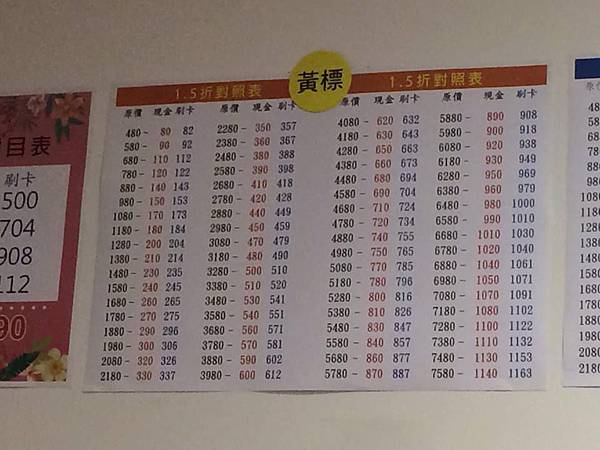 黃標
1.5折對照表
原價 現金 刷卡 原價 現金 刷卡
480- 80 82 2280- 350 357
580- 90 92 2380- 360 367
680- 110 112 2480- 380 388
780- 120 122 2580- 390 398
880- 140 143 2680- 410 418
980- 150 153 2780- 420 428
1080- 170 173 2880- 440 449
1180- 180 184 2980- 450 459
1280- 200 204 3080- 470 479
1380- 210 214 3180- 480 490
1480- 230 235 3280- 500 510
1580- 240 245 3380- 510 520
1680- 260 265 3480- 530 541
1780- 270 275 3580- 540 551
1880- 290 296 3680- 560 571
1980- 300 306 3780- 570 581
2080- 320 326 3880- 590 602
2180- 330 337 3980- 600 612
1.5折對照表
原價 現金 刷卡 原價 現金 刷卡
4080- 620 632 5880- 890 908
4180- 630 643 5980- 900 918
4280- 650 663 6080- 920 938
4380- 660 673 6180- 930 949
4480- 680 694 6280- 950 969
4580- 690 704 6380- 960 979
4680- 710 724 6480- 980 1000
4780- 720 734 6580- 990 1010
4880- 740 755 6680- 1010 1030
4980- 750 765 6780- 1020 1040
5080- 770 785 6880- 1040 1061
5180- 780 796 6980- 1050 1071
5280- 800 816 7080- 1070 1091
5380- 810 826 7180- 1080 1102
5480- 830 847 7280- 1100 1122
5580- 840 857 7380- 1110 1132
5680- 860 877 7480- 1130 1153
5780- 870 887 7580- 1140 1163
目表
刷卡
500
704
908
112
90
原價